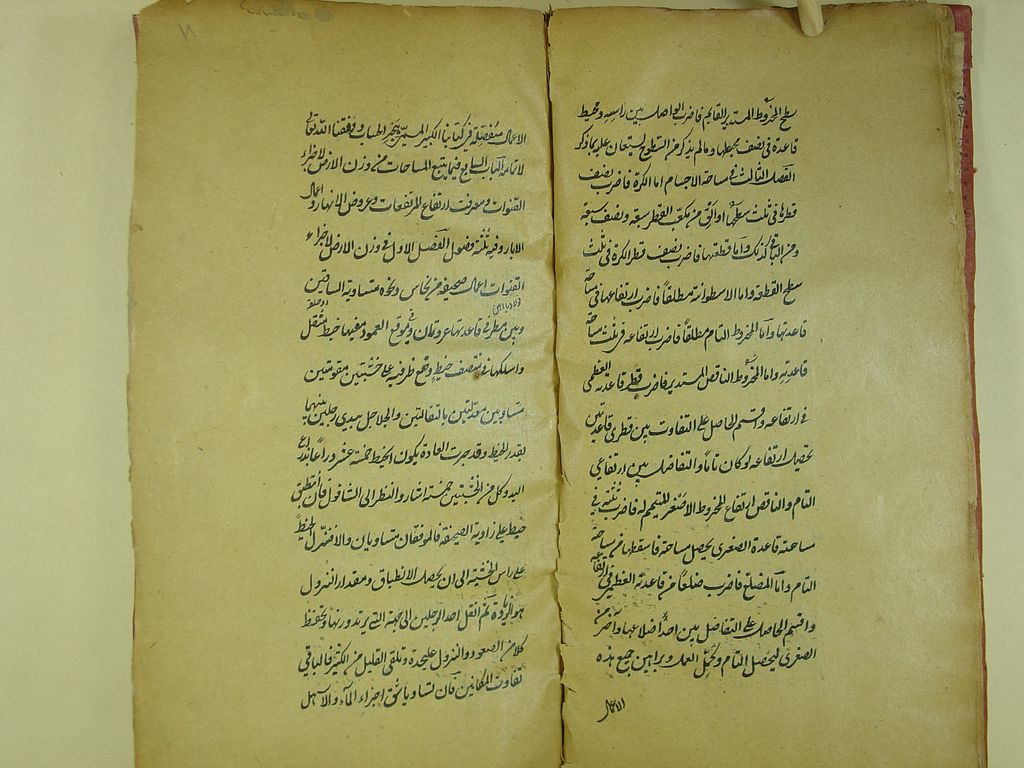 سطح المخروط المستدير القايم فاضرب الواصل بين راسه ومحيط
قاعدة في نصف محيطها ومالم يذكر من السطوح يستعان عليه بما ذكر
الفصل الثالث في مساحة الاجسام اما الكرة فاضرب نصف
قطرها في ثلث سطحها او الق من مكعب القطر سبعه ونصف سبعه
ومن الباقي كذلك واما قطعتها فاضرب نصف قطر الكرة في ثلث
سطح القطعة واما الاسطوانة مطلقاً فاضرب ارتفاعها في مساحة
قاعدتها واما المخروط التام مطلقاً فاضرب ارتفاعه في ثلث مساحة
قاعدته واما المخروط الناقص المستدير فاضرب قطر قاعدته العظمى
في ارتفاعه واقسم الحاصل على التفاوت بين قطري قاعدتين
تحصيل ارتفاعه لو كان تاماً والتفاضل بين ارتفاعي
التام والناقص ارتفاع المخروط الاصغر المتمم له فاضرب ثلثه في
مساحة قاعدة الصغرى يحصل مساحة فاسقطها من مساحة
التام واما المضلع فاضرب ضلعاً من قاعدته العظمى في ارتفاعه
واقسم الحاصل على التفاضل بين احد اضلاعها واخر من
الصغرى ليحصل التام وكمل العمل وبراهين جميع هذه
الاعمال
١١
الاعمال مفصلة في كتابنا الكبير المسمى ببحر الحساب وفقنا الله تعالى
لاتمامه الباب السابع فيما يتبع المساحات من وزن الارض لاجراء
القنوات ومعرفة ارتفاع المرتفعات وعروض الانهار واعماق
الابار وفيه ثلثة فصول الفصل الاول في وزن الارض لاجراء
القنوات اعمل صحيفة من نحاس ونحوه متساوية الساقين
وبين طرفي قاعدتها عروتان وفي موقع العمود منها خيط مثقل
واسلكها في منتصف خيط وضع طرفيه على خشبتين مقومتين
متساويين معدلتين بالثقالتين والجلاجل بيدي رجلين بينهما
بقدر الخيط وقد جرت العادة بكون الخيط خمسة عشر ذراعاً بذراع
اليد وكل من الخشبتين خمسة اشبار والنظر الى الشاقول فان انطبق
خيط على زاوية الصحيفة فالموقفان متساويان والا فنزل الخيط
على راس الخشبة الى ان يحصل الانطباق ومقدار النزول
هو الزيادة ثم انقل احد الرجلين الى جهة التي يريد وزنها وتحفظ
كلا من الصعود والنزول عليحدة وتلقى القليل من الكثير فالباقي
تفاوت المكانين فان تساويا شق اجراء الماء والا سهل